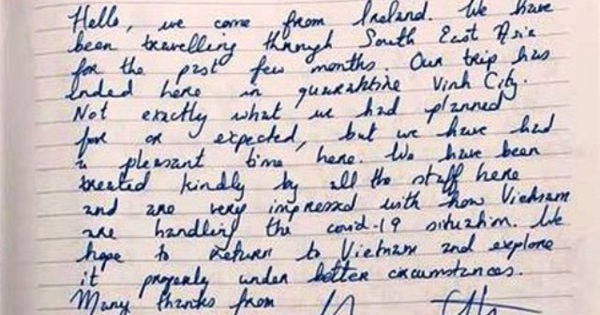 Hello, we come from Ireland. We have
been travelling through South East Asia
for the past few months. Our trip has
ended here in quarantine Vinh City.
Not exactly what we had planned
for or expected, but we have had
a pleasant time here. We have been
treated kindly by all the staff here
and are very impressed with how Vietnam
are handling the covid-19 situation. We
hope to return to Vietnam and explore
it properly under better circumstances.
Many thanks from